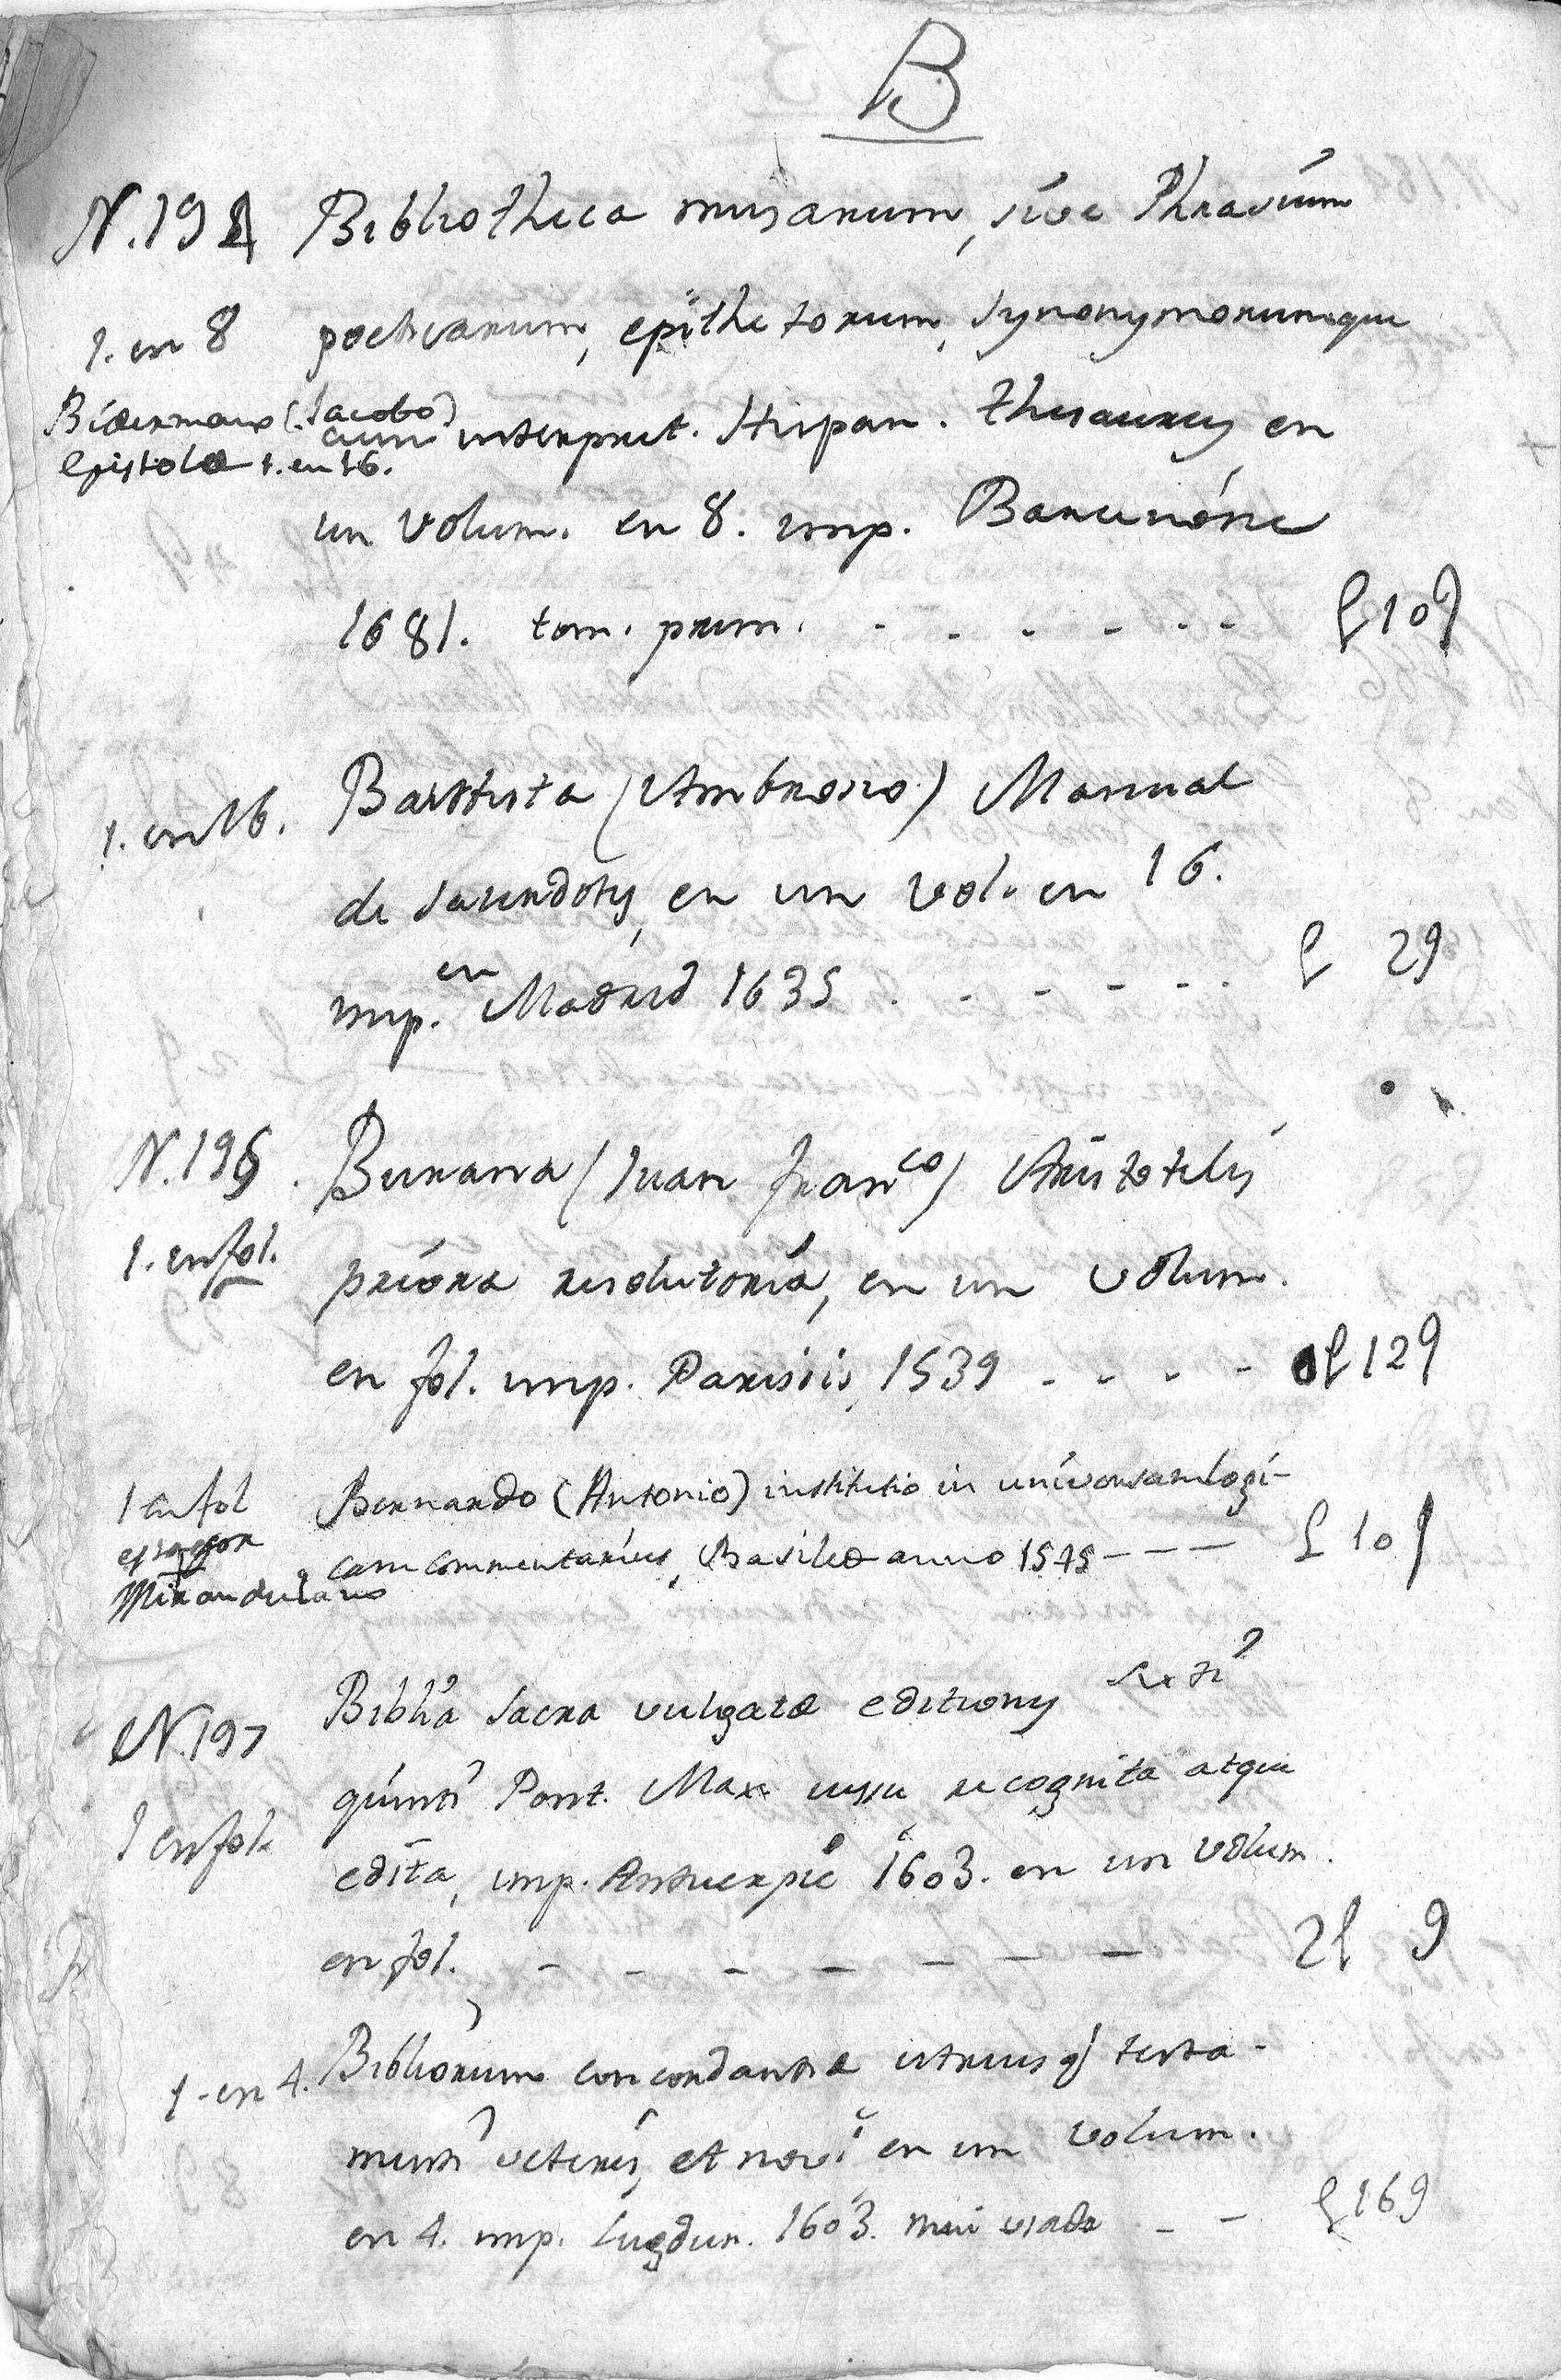 B
N. 194 Bibliotheca musarum, sive Phrasium
1. en 8 poeticarum, epithetorum, synonymorumque
Biderman (Jacobo)
cum interpret. Hispan. thesaurus en
Epistolæ 1. en 16.
un volum. en 8. imp. Barcinóne
1681. tom. prim. - - - - - - £ 10 9
1. en 16. Bauttista (Ambrosio) Manual
de sacerdotes, en un vol. en 16.
imp. en Madrid 1635 . - - - - . £ 29
N. 196. Burana (Juan Franco) Aristotelis
1. en fol. prióra resolutoria, en un volum.
en fol. imp. Parisiis, 1539 - - - - £ 129
1 en fol Bernardo (Antonio) institutio in universam logi-
cam commentarius, Basileæ anno 1545 - - - £ 10 9
Mirandulano
N. 197 Biblia Sacra vulgatæ editionys Sixti
quinti Pont. Max. iussu recognita atque
1 en fol. edita, imp. Antuerpie 1603. en un volum.
en fol. - - - - - - - 2£ 9
1. en 4. Bibliorum concordantiæ utriusq testa-
menti veteris, et novi en un volum.
en 4. imp. Lugdun. 1603. mui usado - - £ 169